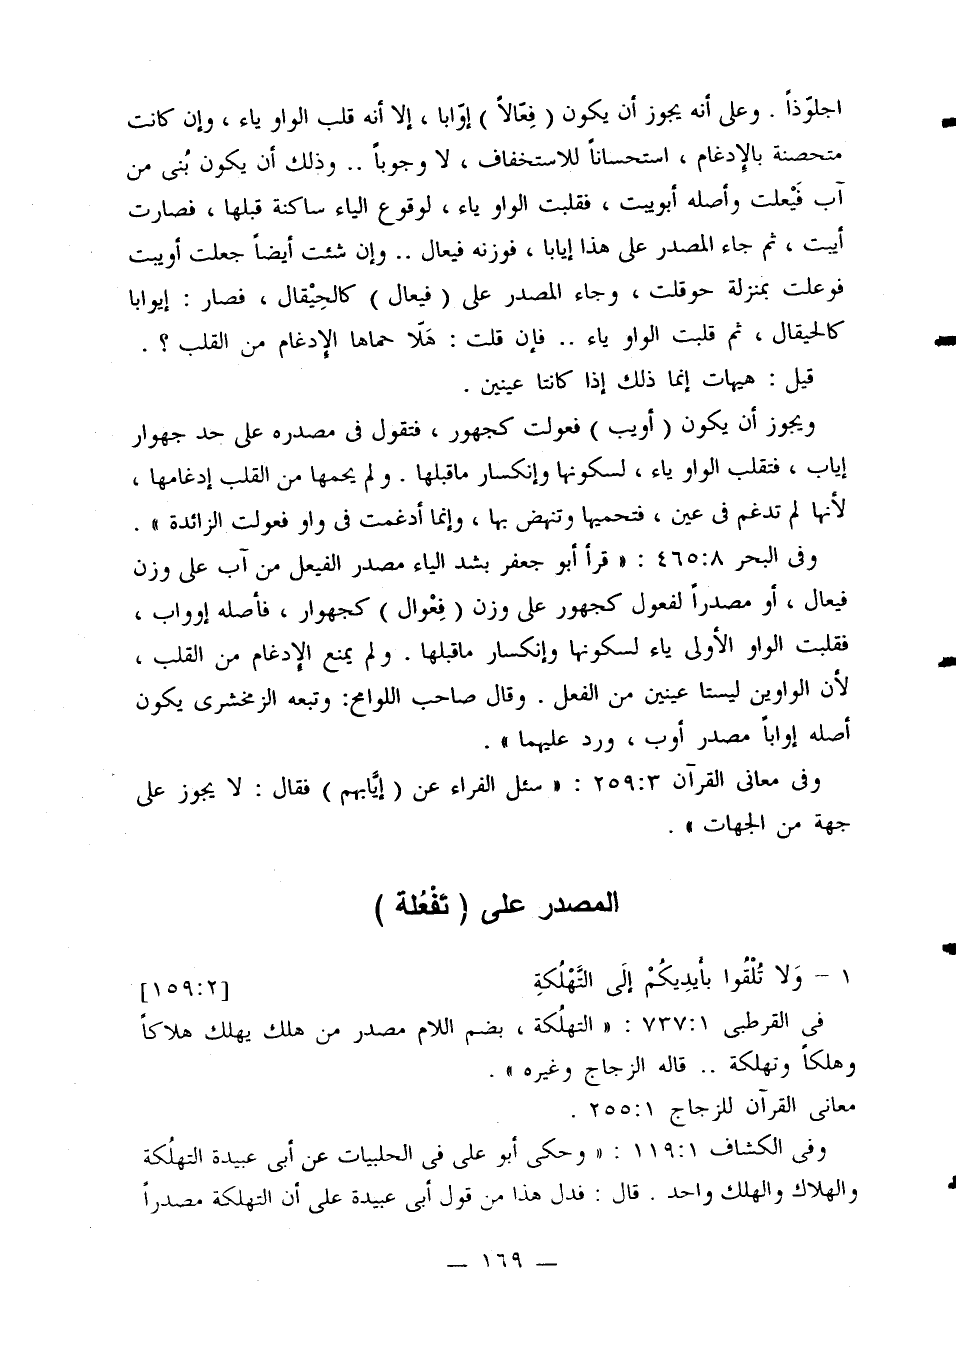 اجلوّذاً . وعلى أنه يجوز أن يكون ( فِعّالاً ) إوّابا ، إلا أنه قلب الواو ياء ، وإن كانت
متحصنة بالإدغام ، استحساناً للاستخفاف ، لا وجوباً .. وذلك أن يكون بُنى من
آب فَيْعلت وأصله أبويبت ، فقلبت الواو ياء ، لوقوع الياء ساكنة قبلها ، فصارت
أيبت ، ثم جاء المصدر على هذا إيابا ، فوزنه فيعال .. وإن شئت أيضاً جعلت أويبت
فوعلت بمنزلة حوقلت ، وجاء المصدر على ( فيعال ) كالحِيْقال ، فصار : إيوابا
كالحيقال ، ثم قلبت الواو ياء .. فإن قلت : هَلّا حماها الإدغام من القلب ؟ .
قيل : هيهات إنما ذلك إذا كانتا عينين .
ويجوز أن يكون ( أويب ) فعولت كجهور ، فتقول فى مصدره على حد جهوار
إياب ، فتقلب الواو ياء ، لسكونها وإنكسار ماقبلها . ولم يحمها من القلب إدغامها ،
لأنها لم تدغم فى عين ، فتحميها وتنهض بها ، وإنما أدغمت فى واو فعولت الزائدة » .
وفى البحر ٤٦٥:٨ : « قرأ أبو جعفر بشد الياء مصدر الفيعل من آب على وزن
فيعال ، أو مصدراً لفعول كجهور على وزن ( فِعْوال ) كجهوار ، فأصله إوواب ،
فقلبت الواو الأولى ياء لسكونها وإنكسار ماقبلها . ولم يمنع الإدغام من القلب ،
لأن الواوين ليستا عينين من الفعل . وقال صاحب اللوامح: وتبعه الزمخشرى يكون
أصله إواباً مصدر أوب ، ورد عليهما » .
وفى معانى القرآن ٢٥٩:٣ : « سئل الفراء عن ( إيَّابهم ) فقال : لا يجوز على
جهة من الجهات » .
المصدر على ( تَفْعُلة )
١ – وَلا تُلْقُوا بأَيدِيكُمْ إلَى التَّهْلُكةِ [١٥٩:٢]
فى القرطبى ٧٣٧:١ : « التهلُكة ، بضم اللام مصدر من هلك يهلك هلاكاً
وهلكاً وتهلكة .. قاله الزجاج وغيره » .
معانى القرآن للزجاج ٢٥٥:١ .
وفى الكشاف ١١٩:١ : « وحكى أبو على فى الحلبيات عن أبى عبيدة التهلُكة
والهلاك والهلك واحد . قال : فدل هذا من قول أبى عبيدة على أن التهلكة مصدراً
— ١٦٩ —